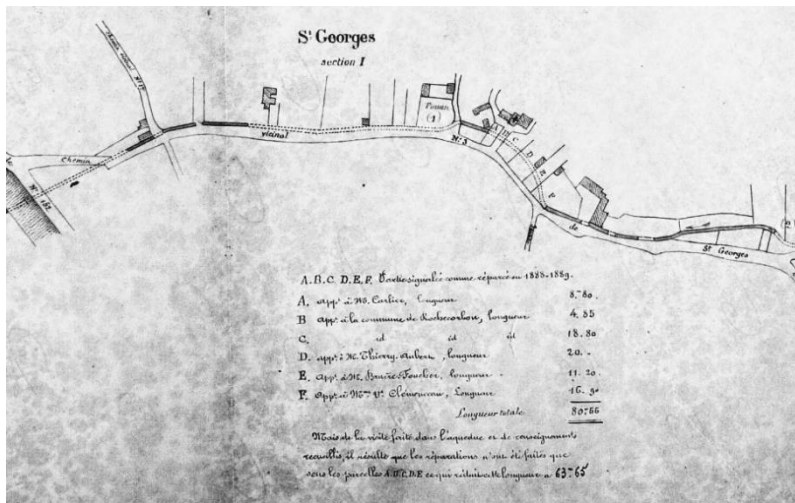 St Georges
section I
Chemin vicinal No 12
(1)
Chemin
vicinal
No 3
A B C
D
E
F
No 152
de
St Georges
A.B.C. D.E.F. Partie signalée comme réparée en 1888-1889.
A. appt à M. Carlier, longueur 8m80.
B appt à la commune de Rochecorbon, longueur 4.85
C. id id id 18.80
D. appt à M. Thierry-Aubert, longueur 20. "
E. appt à M. longueur " 11.20.
F. appt à Mme Ve longueur 16.90
Longueur totale 80m55
Mais de la visite faite dans l'aqueduc et de renseignements
recueillis, il résulte que les réparations n'ont été faites que
sous les parcelles A.B.C.D.E ce qui réduit cette longueur à 63m65